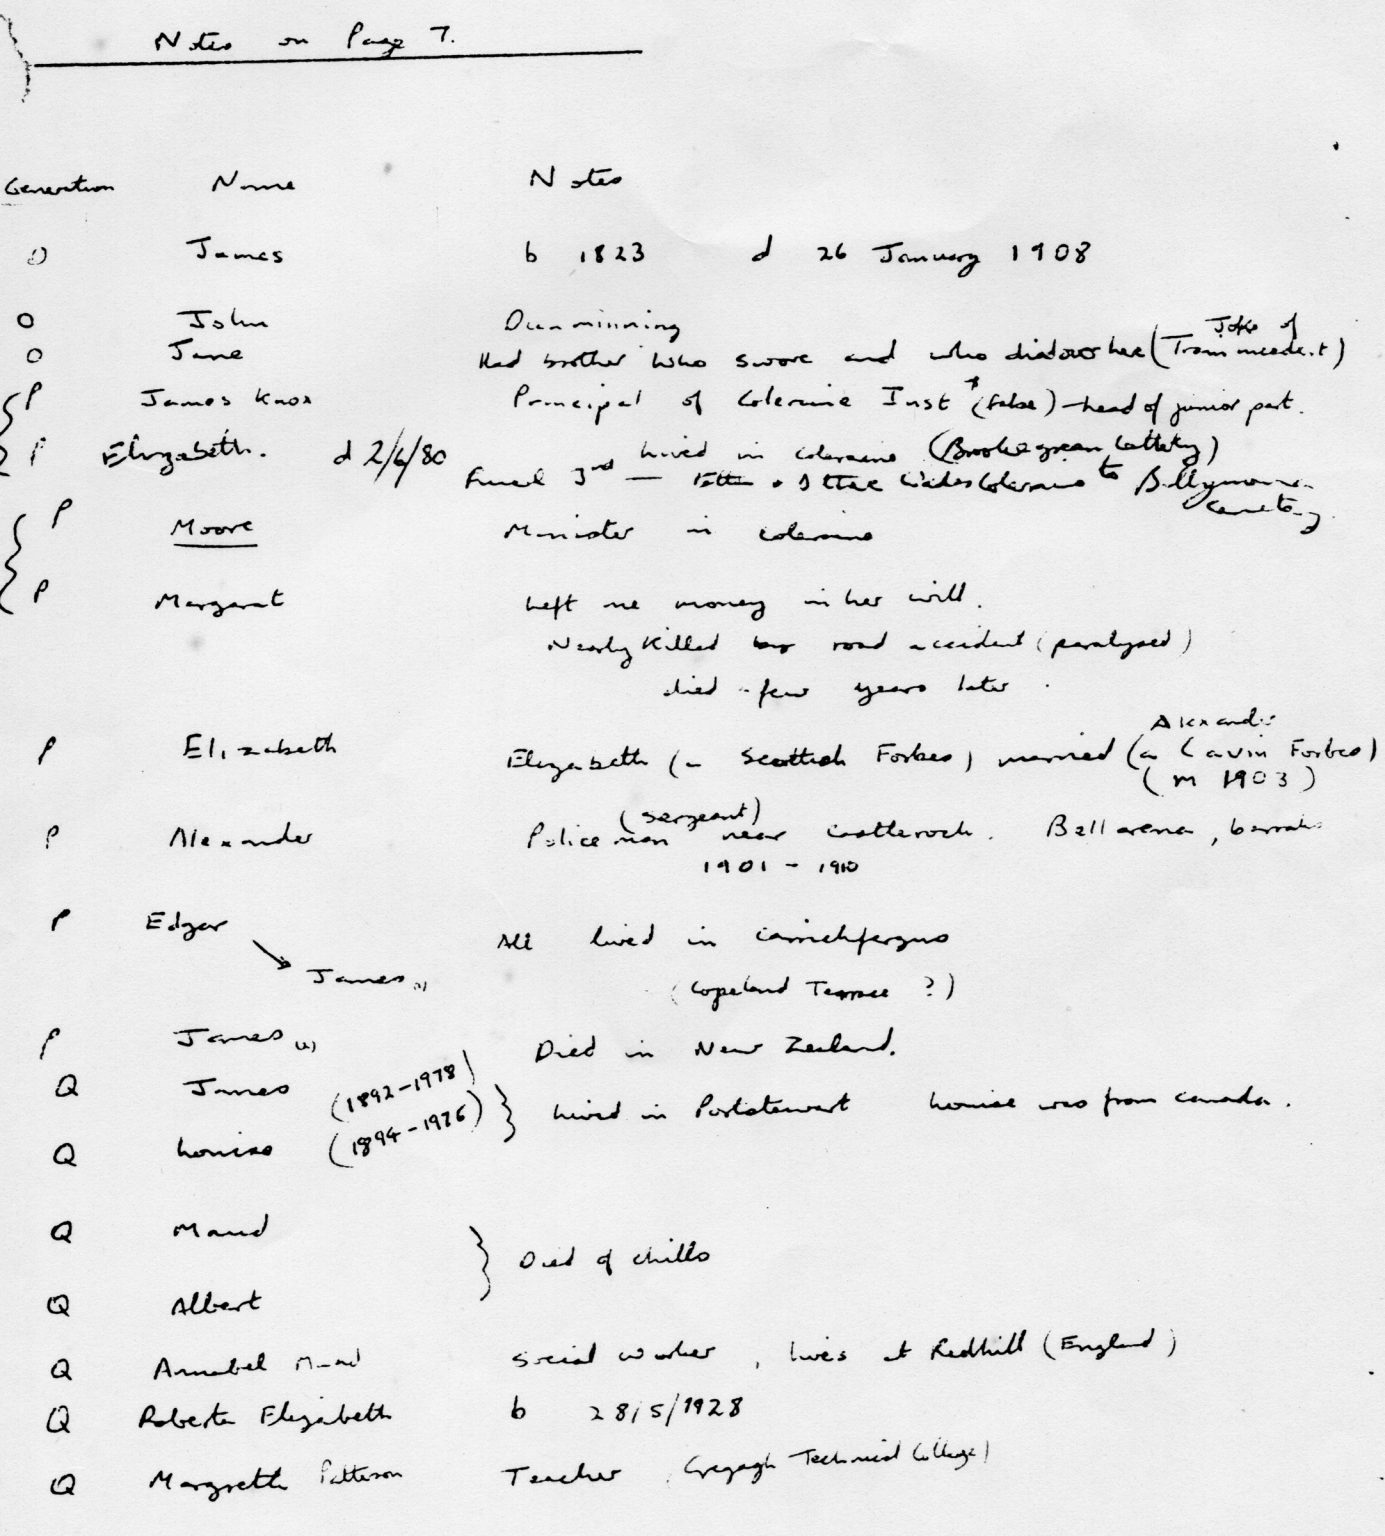 Notes on Page 7.
Generation Name Notes
O James b 1823 d 26 January 1908
O John Dunminning
O Jane Had brother who swore and who died over here (Joke of Tram incident)
P James Knox Principal of Coleraine Inst (false) - head of junior part.
P Elizabeth. d 2/6/80 Lived in Coleraine (Brooke green Cottetty)
Funeral 3rd — + Ottee Coleraine to Ballymoney Cemetery.
P Moore Minister in Coleraine
P Margaret Left me money in her will.
Nearly killed by road accident (paralysed)
died a few years later.
P Elizabeth Elizabeth (a Scottish Forbes) married (a Cavin Forbes) Alexander
(m 1903)
P Alexander Policeman (sergeant) near Castlerock. Bellarena, barracks
1901 - 1910
P Edgar All lived in Carrickfergus
James (1) (Copeland Terrace ?)
P James (2) Died in New Zealand.
Q James (1892-1978) } Lived in Portstewart Louise was from Canada.
Q Louise (1894-1976)
Q Maud } Died of chills
Q Albert
Q Annabel Maud Social worker, lives at Redhill (England)
Q Roberta Elizabeth b 28/5/1928
Q Margretta Patterson Teacher (Gregagh Technical College)